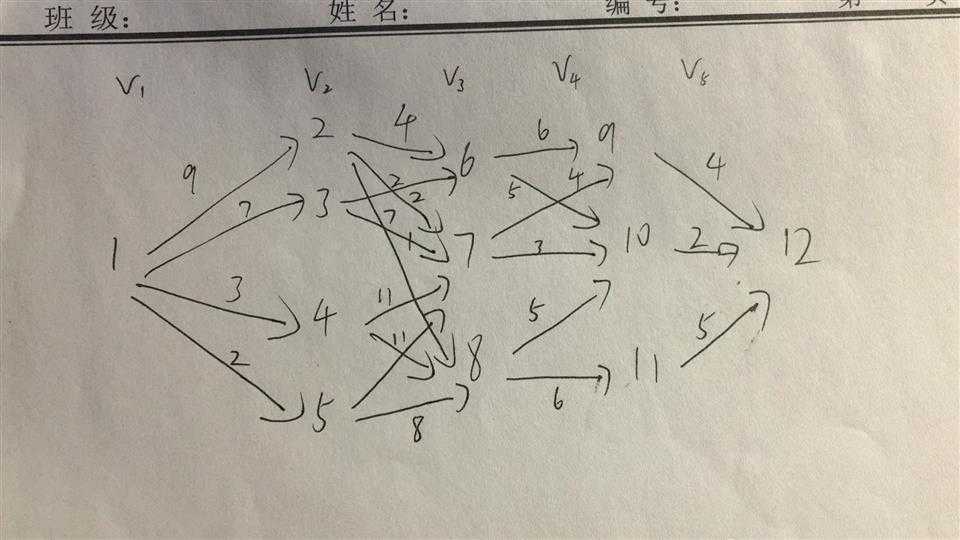 班 级: 姓 名: 编 号: 第
V1 V2 V3 V4 V5
2 4 6 9
9 6 4
7 3 2 2 5 4
7 1 7 3 10 2 12
1
3 4 11
11 8 5 5
2 5 11
8 6